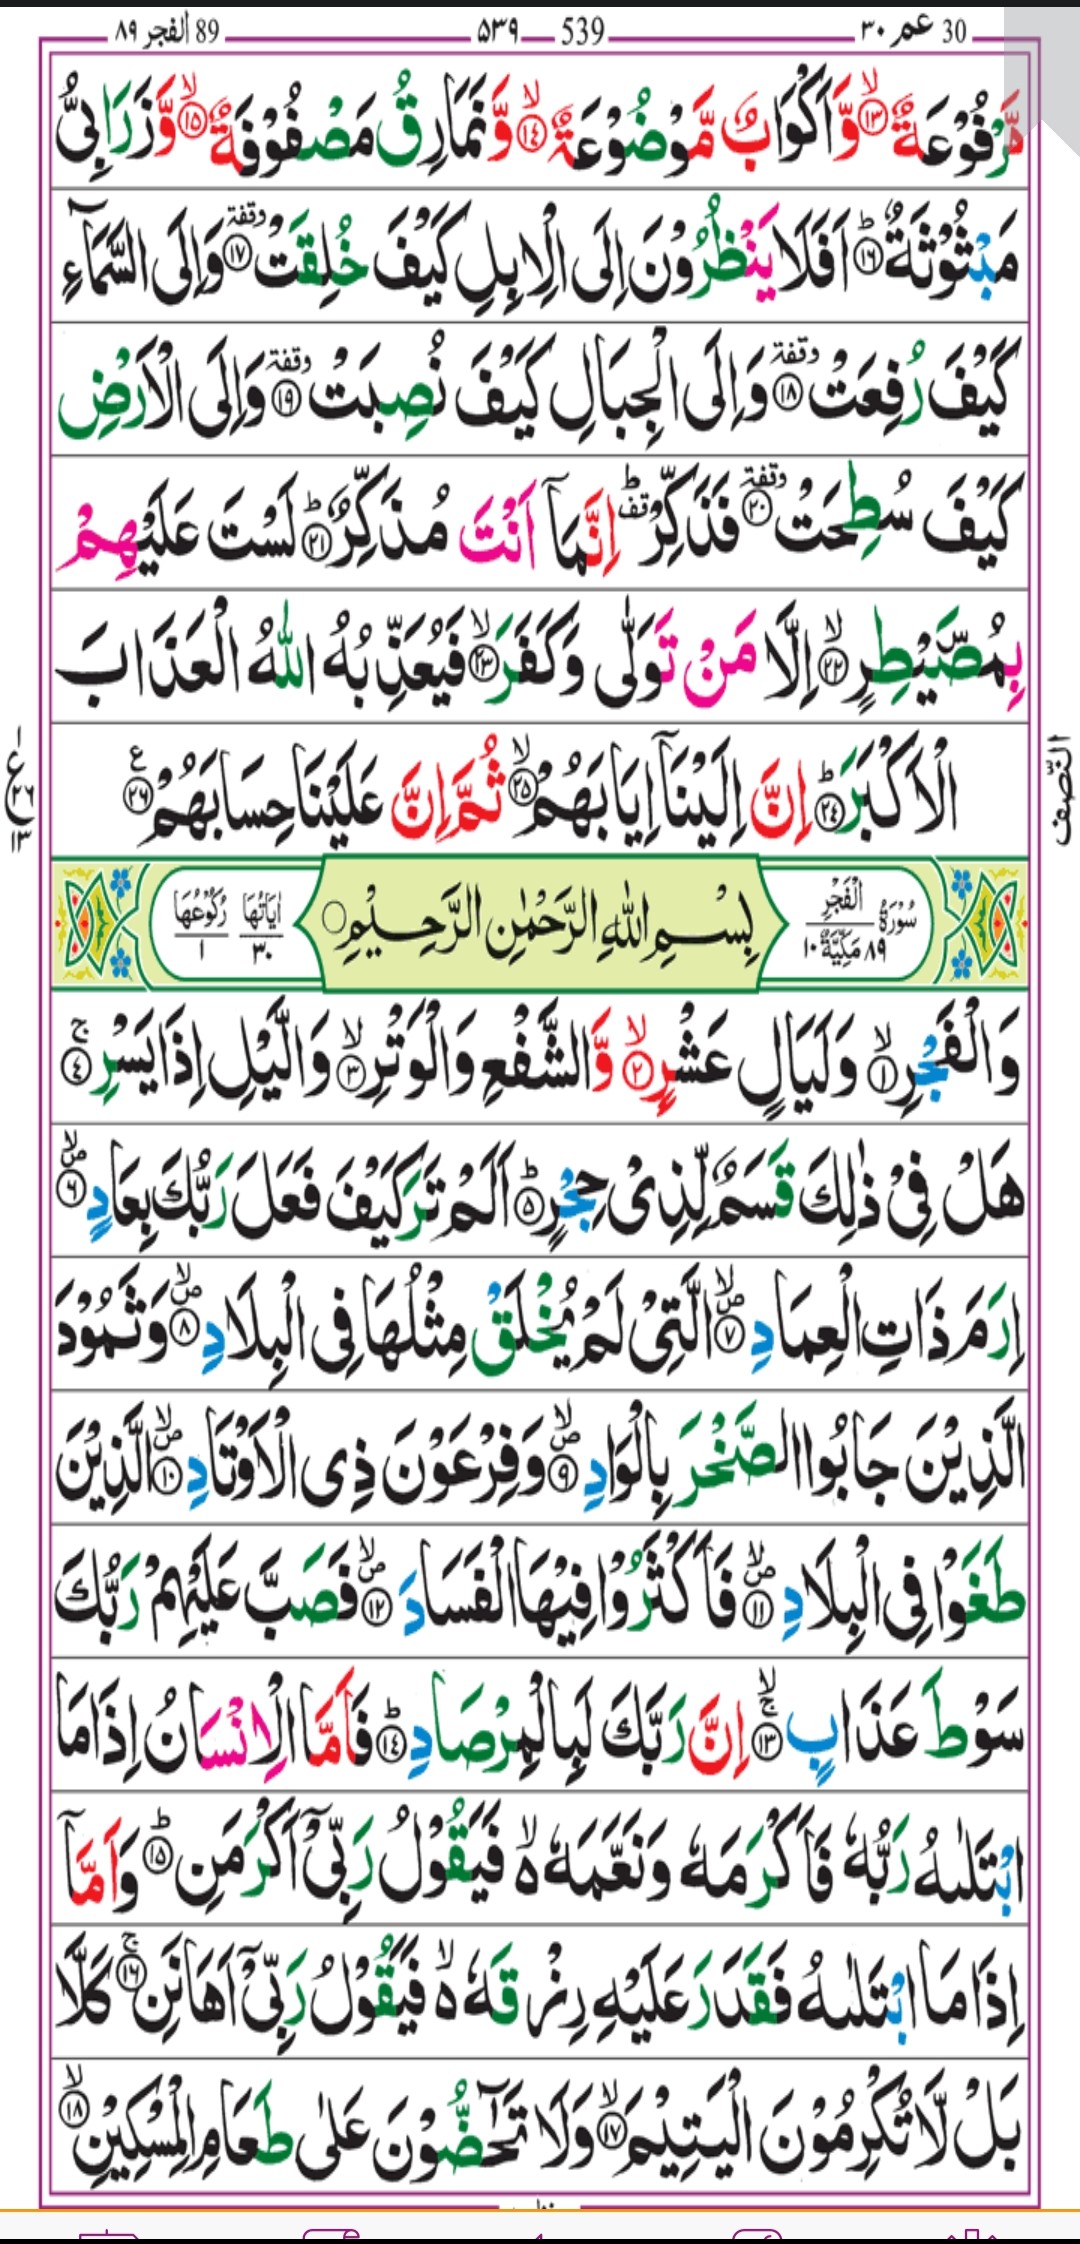 30 عم ٣٠ 539 ٥٣٩ 89 الفجر ٨٩
مَّرْفُوْعَةٌ ۙ‏﴿۱۳﴾ وَّاَكْوَابٌ مَّوْضُوْعَةٌ ۙ‏﴿۱۴﴾ وَّنَمَارِقُ مَصْفُوْفَةٌ ۙ‏﴿۱۵﴾ وَّزَرَابِىُّ
مَبْثُوْثَةٌ ؕ‏﴿۱۶﴾ اَفَلَا يَنْظُرُوْنَ اِلَى الْاِبِلِ كَيْفَ خُلِقَتْ وقفة﴿۱۷﴾ وَاِلَى السَّمَآءِ
كَيْفَ رُفِعَتْ وقفة﴿۱۸﴾ وَاِلَى الْجِبَالِ كَيْفَ نُصِبَتْ وقفة﴿۱۹﴾ وَاِلَى الْاَرْضِ
كَيْفَ سُطِحَتْ وقفة﴿۲۰﴾ فَذَكِّرْ ؕ قف اِنَّمَاۤ اَنْتَ مُذَكِّرٌ ؕ‏﴿۲۱﴾ لَسْتَ عَلَيْهِمْ
بِمُصَۜيْطِرٍ ۙ‏﴿۲۲﴾ اِلَّا مَنْ تَوَلّٰى وَكَفَرَ ۙ‏﴿۲۳﴾ فَيُعَذِّبُهُ اللّٰهُ الْعَذَابَ
الْاَكْبَرَ ؕ‏﴿۲۴﴾ اِنَّ اِلَيْنَاۤ اِيَابَهُمْ ۙ‏﴿۲۵﴾ ثُمَّ اِنَّ عَلَيْنَا حِسَابَهُمْ ع﴿۲۶﴾
النّصف
ع ١ ٢٦ ١٣
سُوْرَةُ الْفَجْرِ ٨٩ مَكِّيَّةٌ ١٠ بِسْمِ اللّٰهِ الرَّحْمٰنِ الرَّحِيْمِ اٰيَاتُهَا ٣٠ رُكُوْعُهَا ١
وَالْفَجْرِ ۙ‏﴿۱﴾ وَلَيَالٍ عَشْرٍ ۙ‏﴿۲﴾ وَّالشَّفْعِ وَالْوَتْرِ ۙ‏﴿۳﴾ وَالَّيْلِ اِذَا يَسْرِ ۚ‏﴿۴﴾
هَلْ فِىْ ذٰلِكَ قَسَمٌ لِّذِىْ حِجْرٍ ؕ‏﴿۵﴾ اَلَمْ تَرَ كَيْفَ فَعَلَ رَبُّكَ بِعَادٍ ۙ ص﴿۶﴾
اِرَمَ ذَاتِ الْعِمَادِ ۙ ص﴿۷﴾ الَّتِىْ لَمْ يُخْلَقْ مِثْلُهَا فِى الْبِلَادِ ۙ ص﴿۸﴾ وَثَمُوْدَ
الَّذِيْنَ جَابُوا الصَّخْرَ بِالْوَادِ ۙ ص﴿۹﴾ وَفِرْعَوْنَ ذِى الْاَوْتَادِ ۙ ص﴿۱۰﴾ الَّذِيْنَ
طَغَوْا فِى الْبِلَادِ ۙ ص﴿۱۱﴾ فَاَكْثَرُوْا فِيْهَا الْفَسَادَ ۙ ص﴿۱۲﴾ فَصَبَّ عَلَيْهِمْ رَبُّكَ
سَوْطَ عَذَابٍ ۙ ۚ‏﴿۱۳﴾ اِنَّ رَبَّكَ لَبِالْمِرْصَادِ ؕ‏﴿۱۴﴾ فَاَمَّا الْاِنْسَانُ اِذَا مَا
ابْتَلٰىهُ رَبُّهٗ فَاَكْرَمَهٗ وَنَعَّمَهٗ ۙ۬ فَيَقُوْلُ رَبِّىْۤ اَكْرَمَنِ ؕ‏﴿۱۵﴾ وَاَمَّاۤ
اِذَا مَا ابْتَلٰىهُ فَقَدَرَ عَلَيْهِ رِزْقَهٗ ۙ۬ فَيَقُوْلُ رَبِّىْۤ اَهَانَنِ ۚ‏﴿۱۶﴾ كَلَّا
بَلْ لَّا تُكْرِمُوْنَ الْيَتِيْمَ ۙ‏﴿۱۷﴾ وَلَا تَحٰٓضُّوْنَ عَلٰى طَعَامِ الْمِسْكِيْنِ ۙ‏﴿۱۸﴾